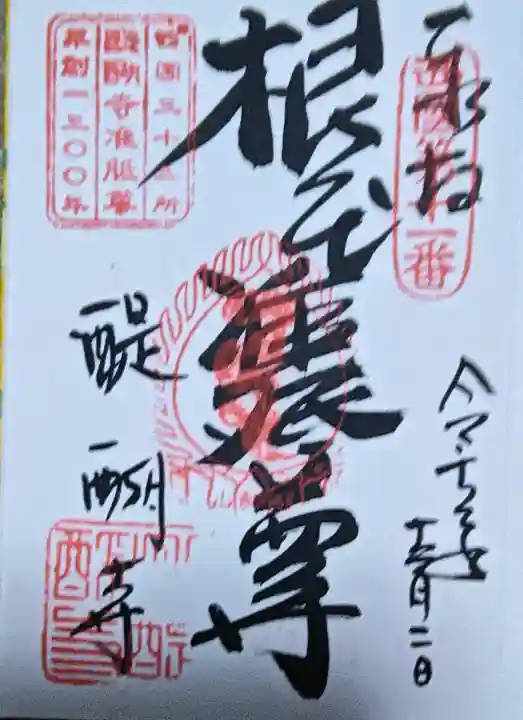 奉拝
西国第十一番
令和
月二日
根本 尊
西国三十三所
醍醐寺准胝尊
草創一三〇〇年
醍醐寺